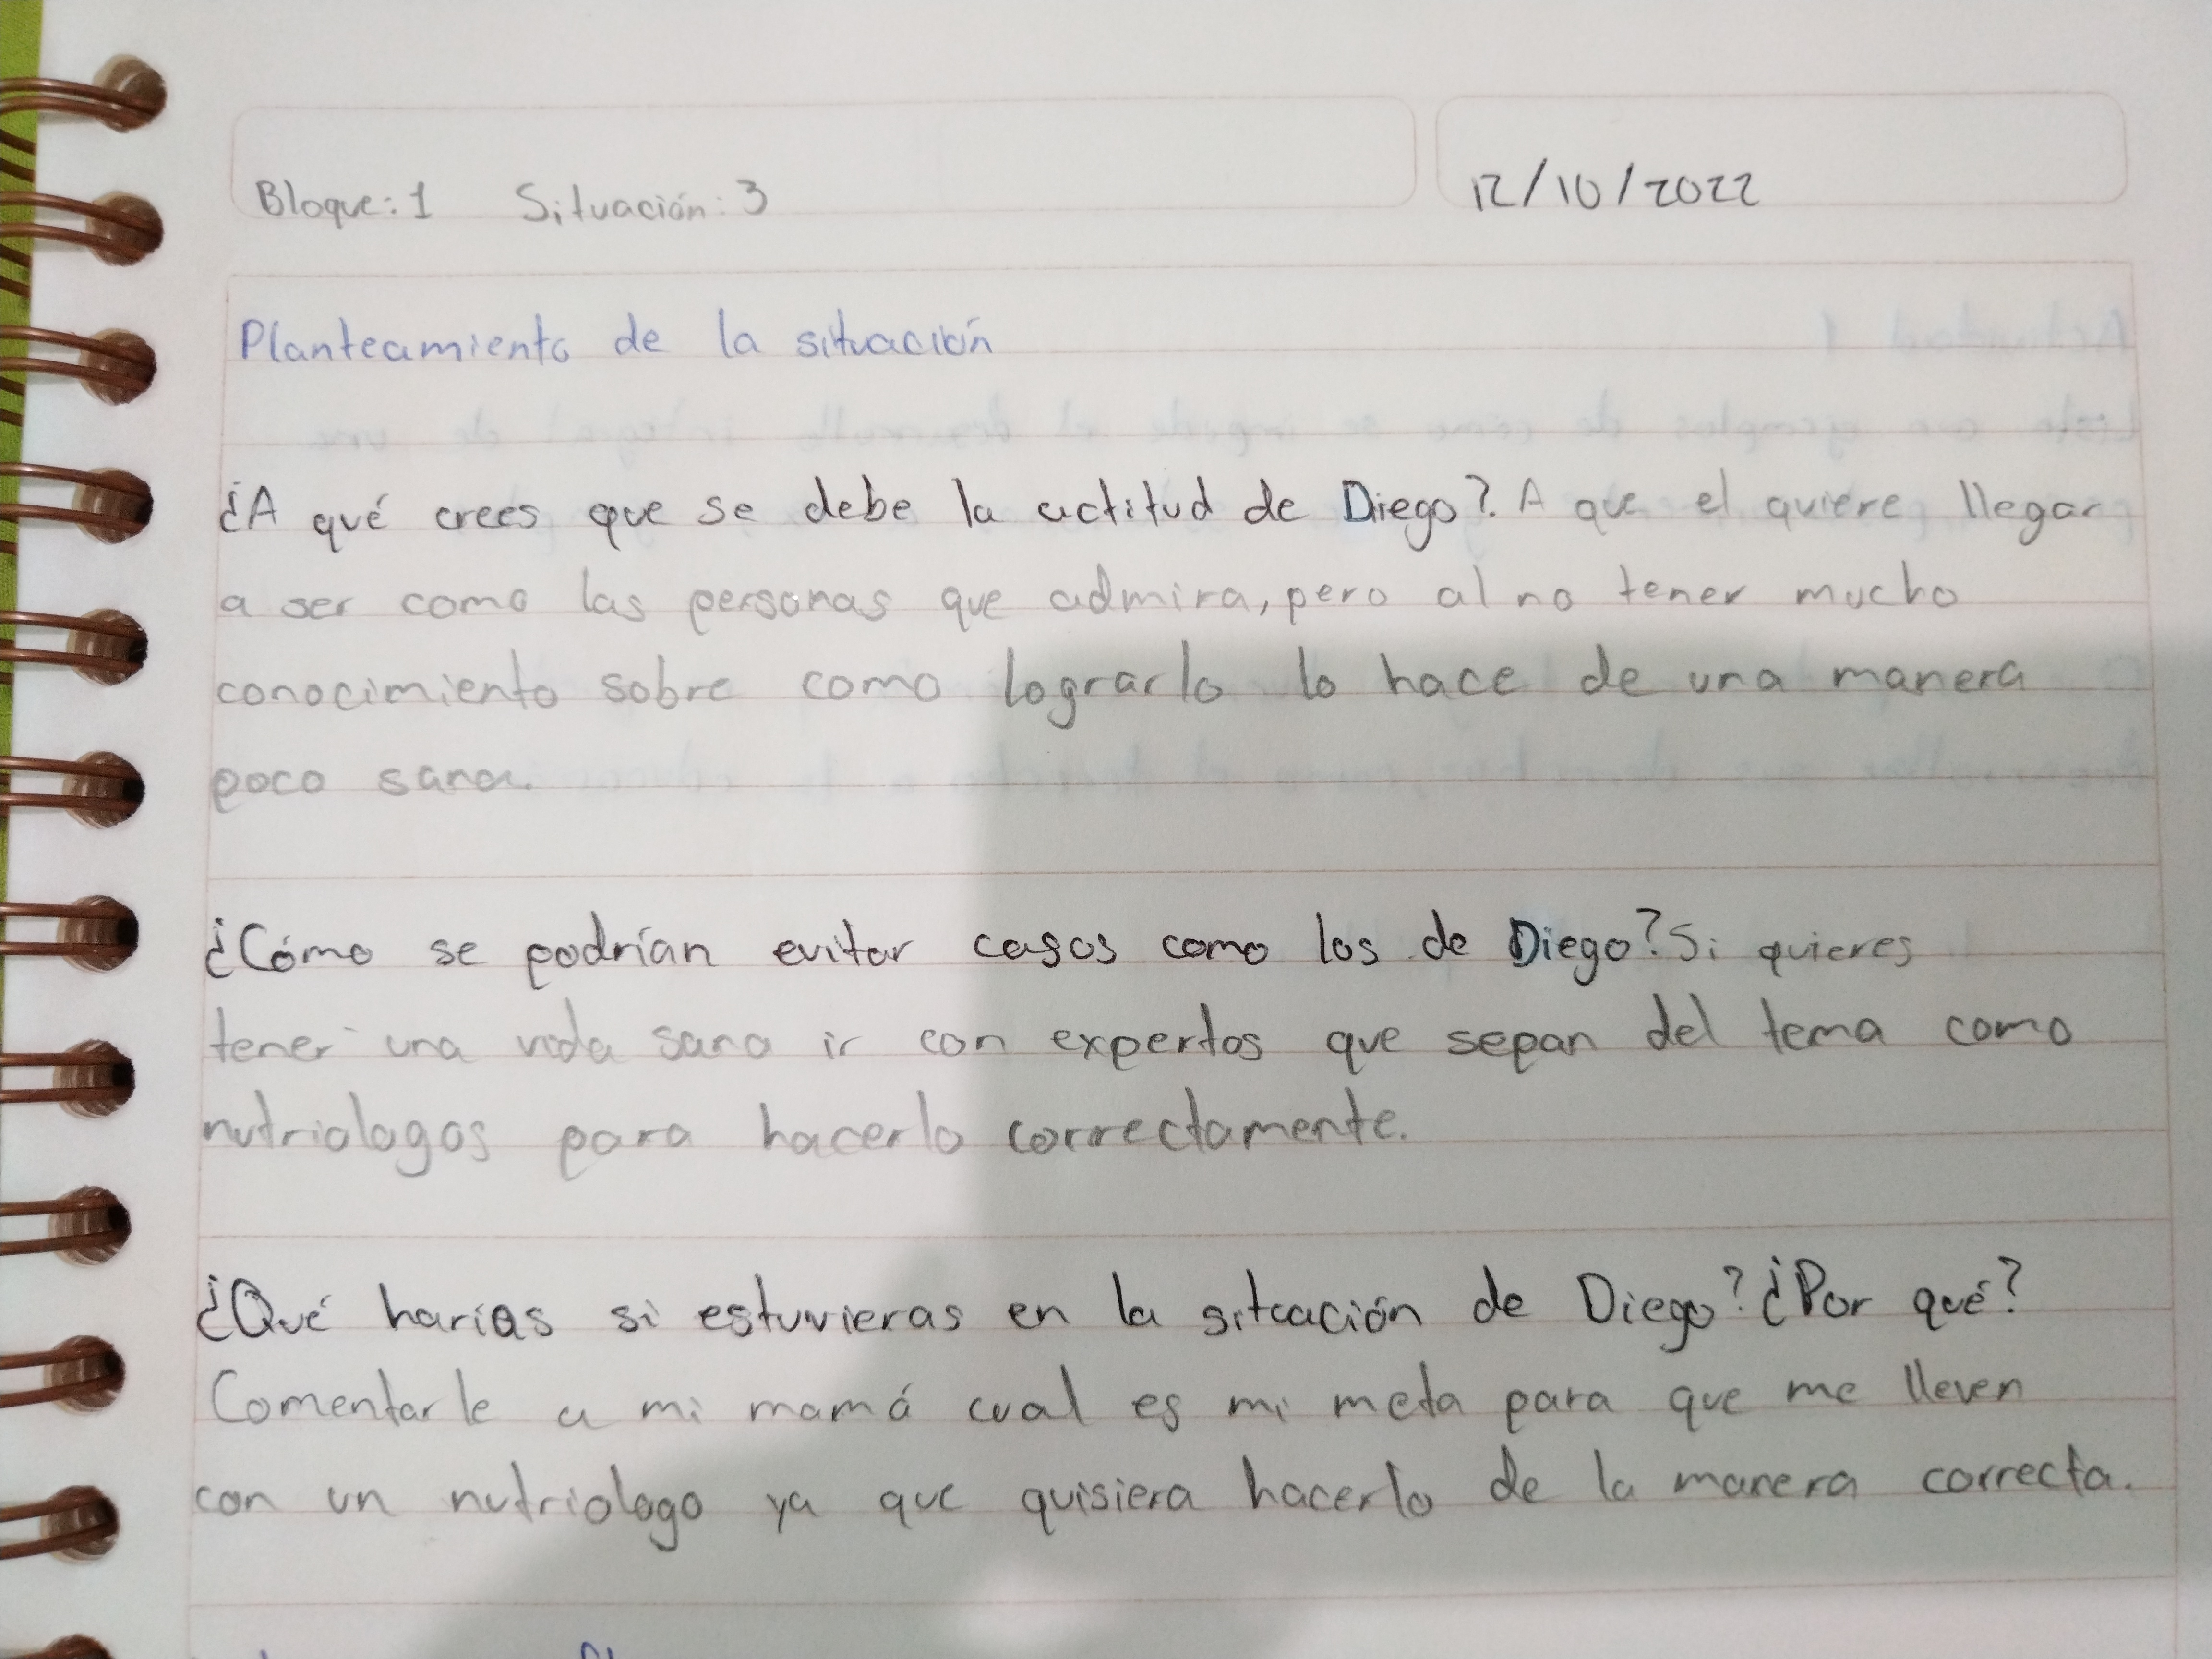 Bloque: 1 Situación: 3
12/10/2022
Planteamiento de la situación
¿A qué crees que se debe la actitud de Diego? A que el quiere llegar
a ser como las personas que admira, pero al no tener mucho
conocimiento sobre como lograrlo lo hace de una manera
poco sana.
¿Cómo se podrían evitar casos como los de Diego? Si quieres
tener una vida sana ir con expertos que sepan del tema como
nutriologos para hacerlo correctamente.
¿Qué harías si estuvieras en la situación de Diego? ¿Por qué?
Comentarle a mi mamá cual es mi meta para que me lleven
con un nutriologo ya que quisiera hacerlo de la manera correcta.